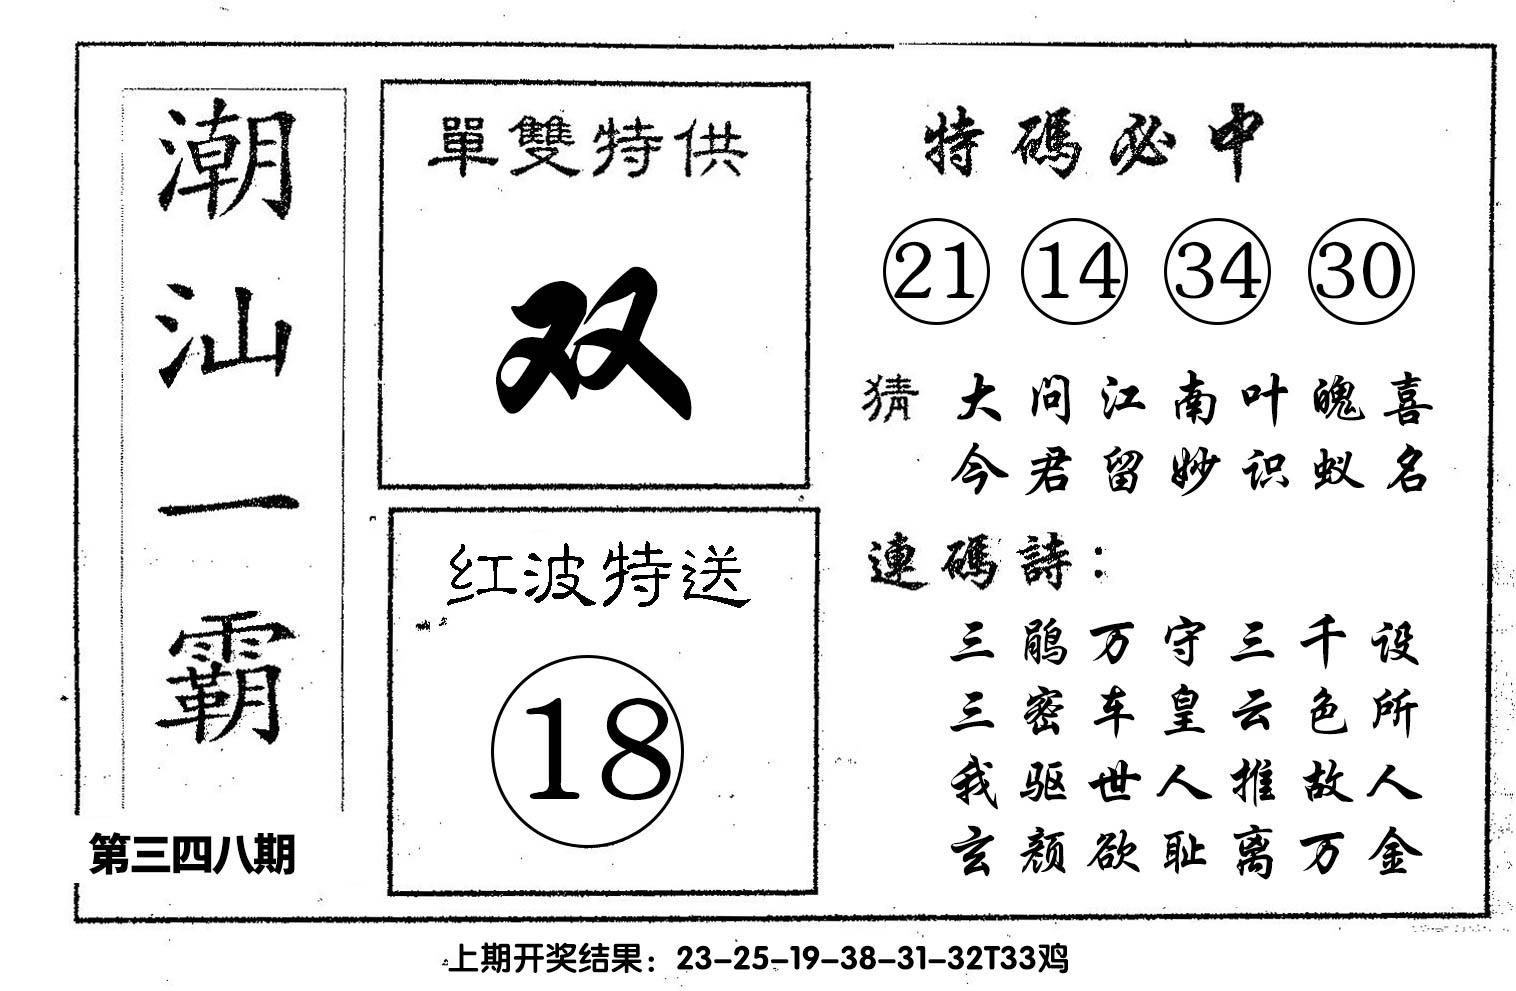 潮汕一霸
第三四八期
單雙特供
双
红波特送
18
特碼必中
21 14 34 30
猜 大问江南叶魄喜
今君留妙识蚁名
連碼詩：
三鹃万守三千设
三密车皇云色所
我驱世人推故人
玄颜欲耻离万金
上期开奖结果：23-25-19-38-31-32T33鸡